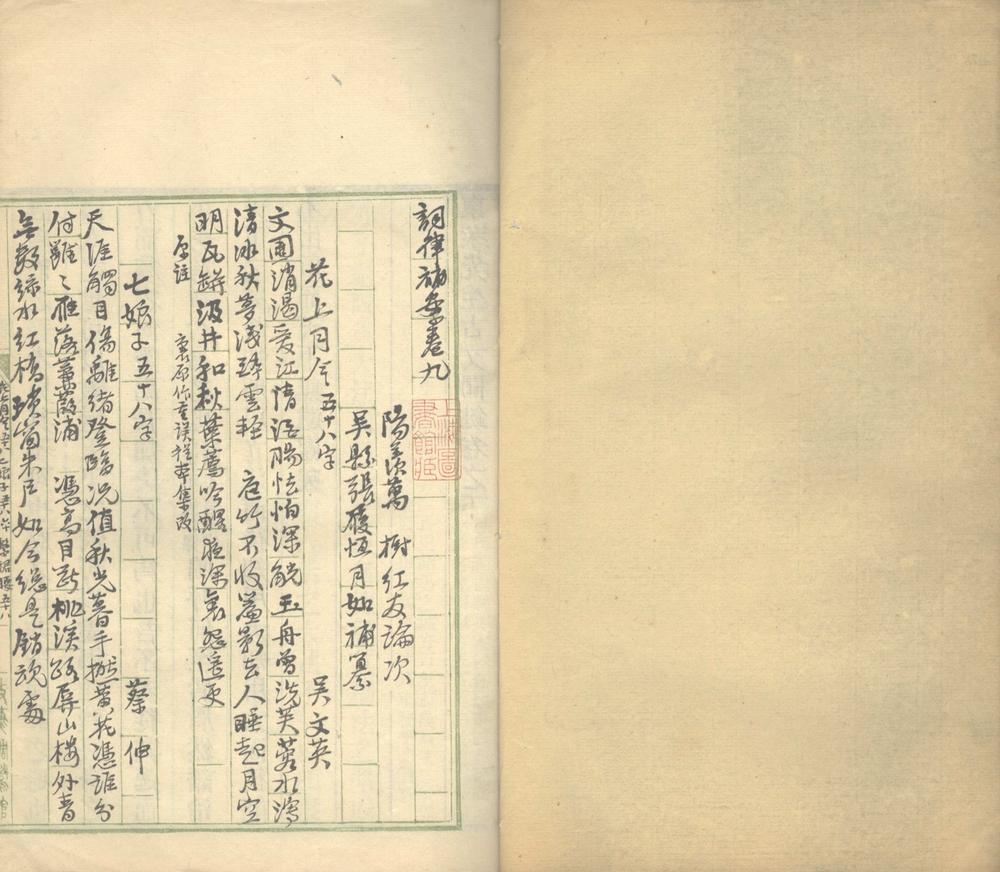 詞律補案卷九
陽羨萬 樹紅友論次
吳縣張履恒月如補纂
花上月令 五十八字 吳文英
文園消渴愛江清酒腸怯怕深觥玉舟曾洗芙蓉水瀉
清冰秋夢淺醉雲輕 庭竹不收簾影去人睡起月空
明瓦缾汲井和秋葉薦吟醒夜深裏怨遙更
原注 裏原作重誤從本集改
七娘子 五十八字 蔡 伸
天涯觸目傷離緒登臨況值秋光暮手撚黃花憑誰分
付雝雝雁落蒹葭浦 憑高目斷桃溪路屏山樓外青
無數綠水紅橋瑣窗朱戶如今總是銷魂處